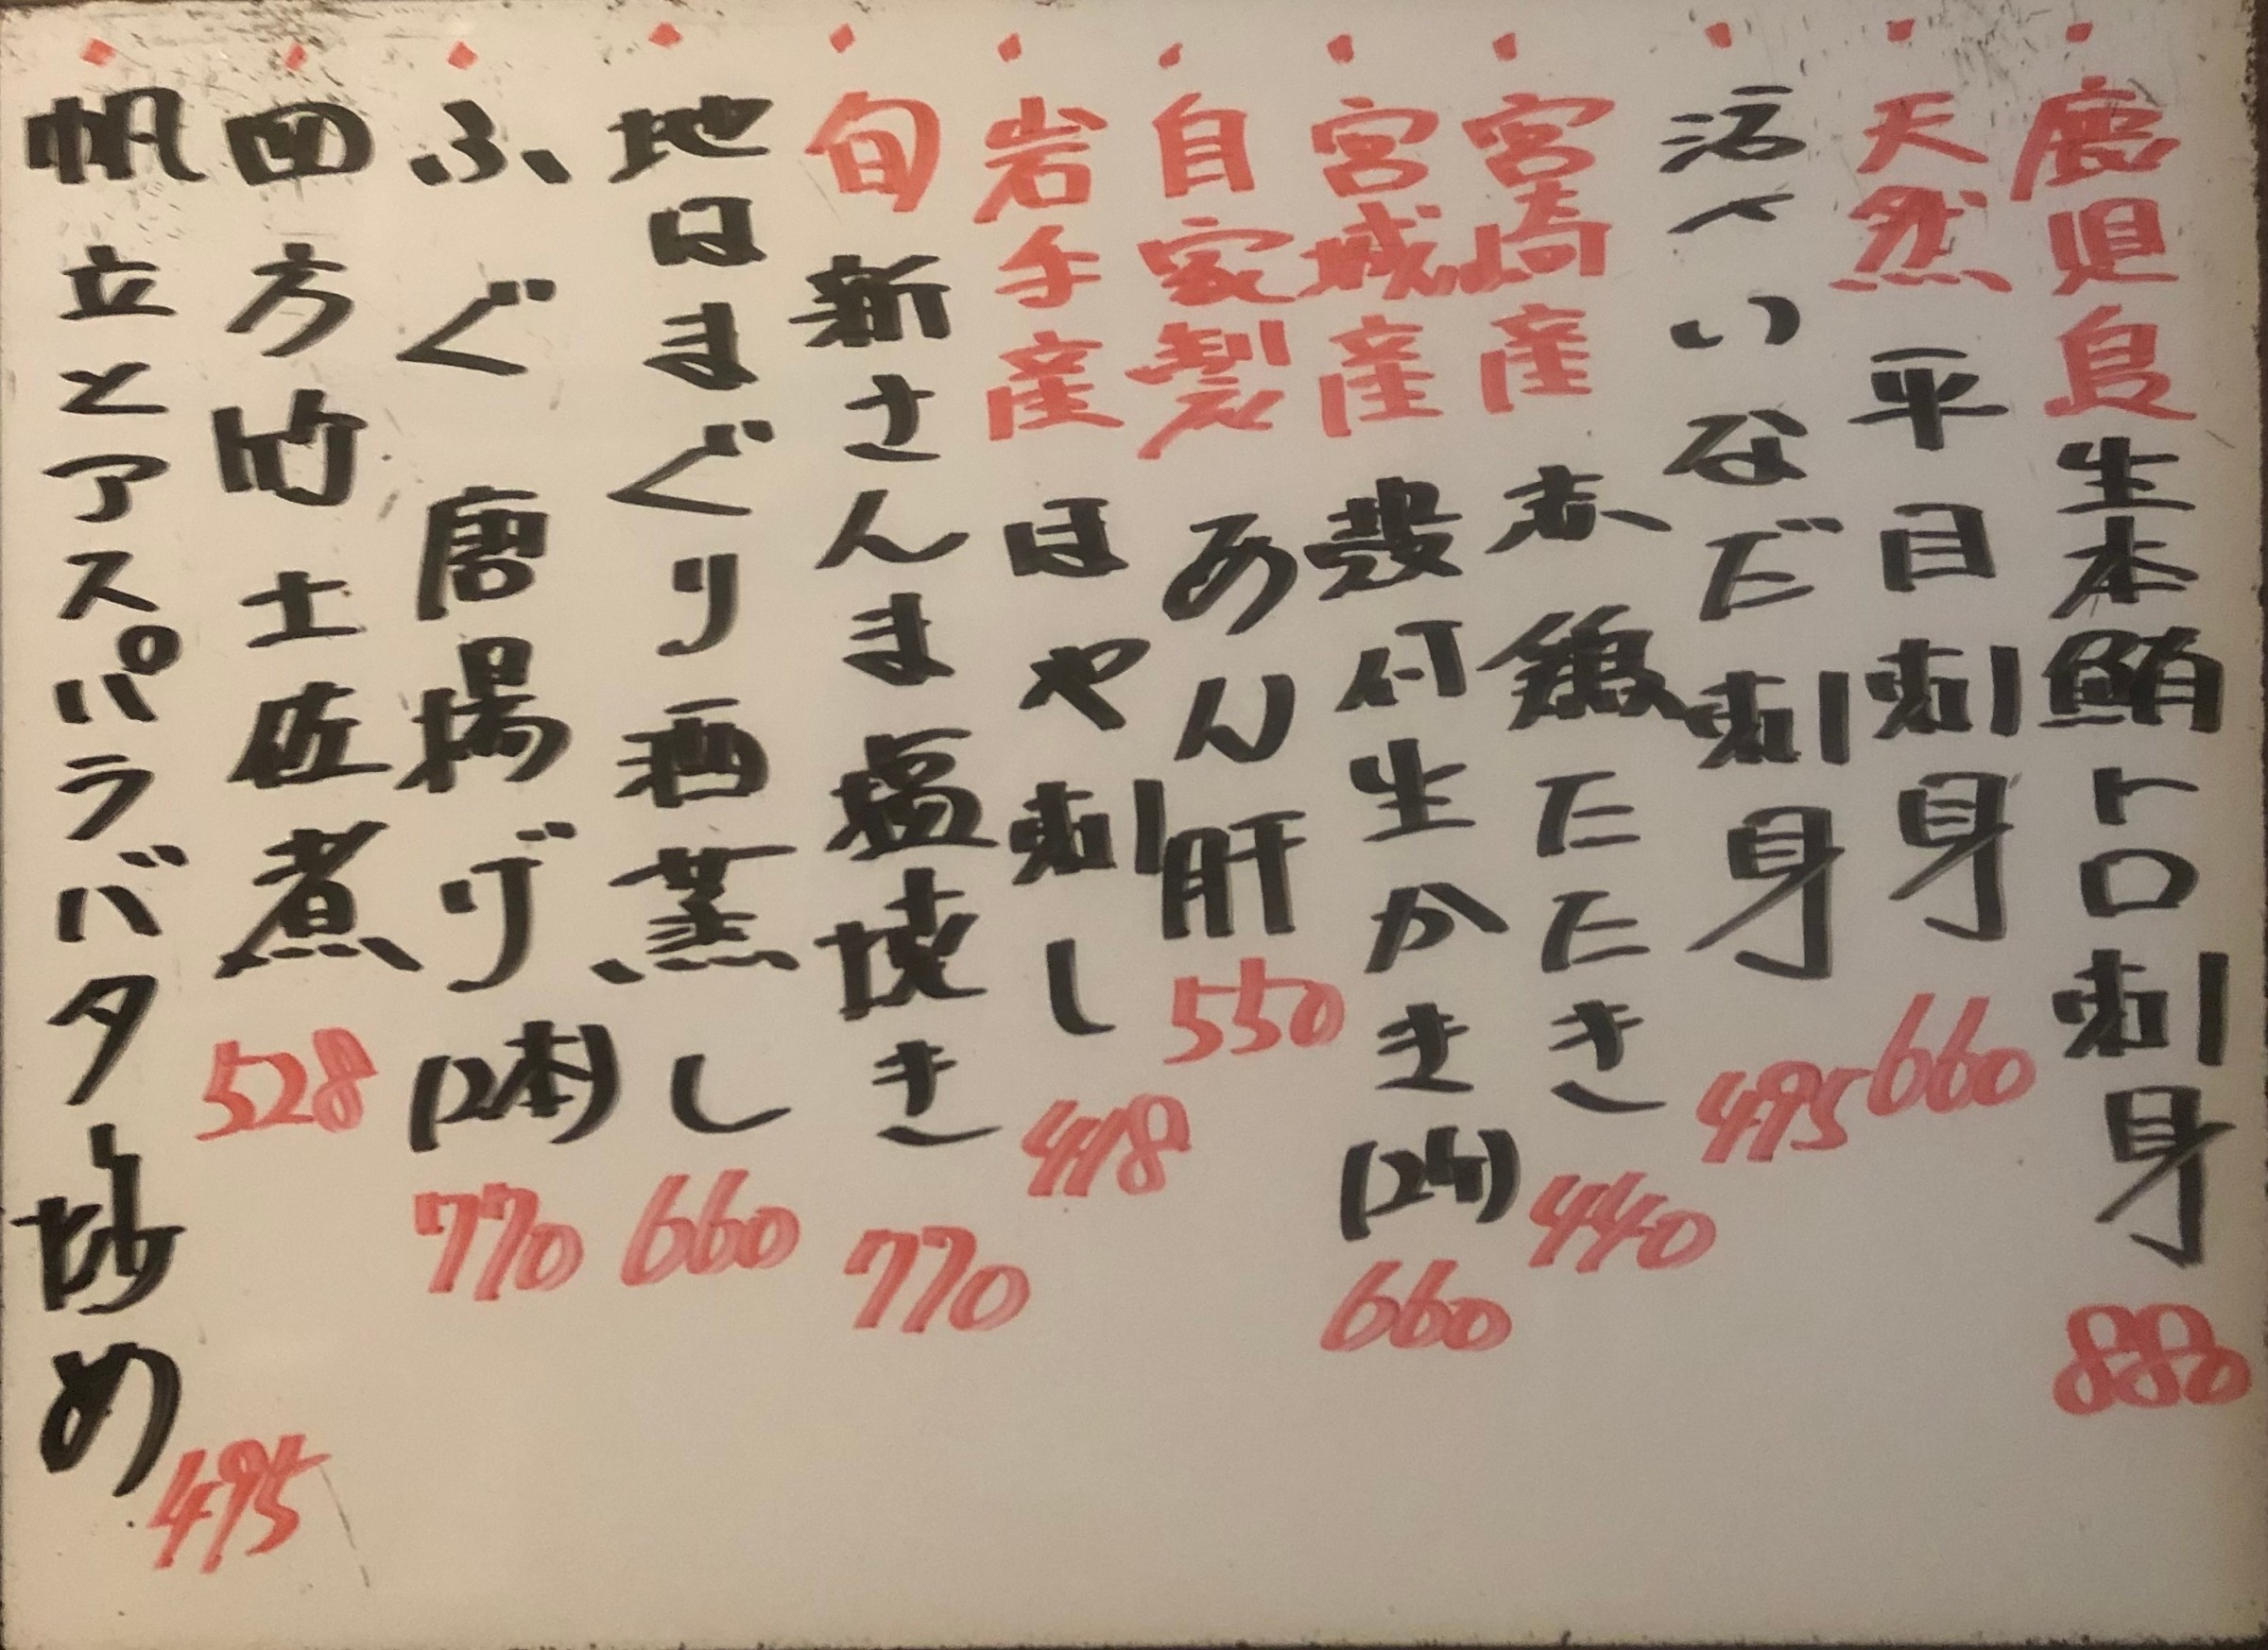 鹿児島生本鮪トロ刺身 880
天然 平目刺身 660
活〆いなだ刺身 495
宮崎産 赤鶏たたき 440
宮城産 殻付生かき(2ケ) 660
自家製 あん肝 550
岩手産 ほや刺し 418
旬 新さんま塩焼き 770
地はまぐり酒蒸し 660
ふぐ 唐揚げ(2本) 770
四方竹土佐煮 528
帆立とアスパラバター炒め 495